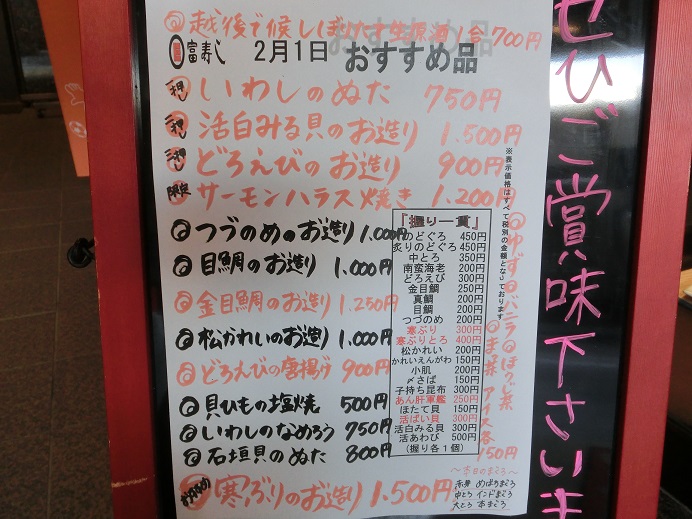 越後で候 しぼりたて生原酒 1合 700円
富寿し 2月1日 おすすめ品
一押 いわしのぬた 750円
二押 活白みる貝のお造り 1.500円
三押 どろえびのお造り 900円
限定 サーモンハラス焼き 1.200円
つづのめのお造り 1.000円
目鯛のお造り 1.000円
金目鯛のお造り 1.250円
松かれいのお造り 1.000円
どろえびの唐揚げ 900円
貝ひもの塩焼 500円
いわしのなめろう 750円
石垣貝のぬた 800円
おすすめ 寒ぶりのお造り 1.500円
『握り一貫』
のどぐろ 450円
炙りのどぐろ 450円
中とろ 350円
南蛮海老 200円
どろえび 300円
金目鯛 250円
真鯛 200円
目鯛 200円
つづのめ 200円
寒ぶり 300円
寒ぶりとろ 400円
松かれい 200円
かれいえんがわ 150円
小肌 150円
〆さば 150円
子持ち昆布 300円
あん肝軍艦 250円
ほたて貝 150円
活ばい貝 300円
活白みる貝 300円
活あわび 500円
(握り各1個)
※表示価格はすべて税別の金額となっております
ゆず バニラ ほうじ茶
まっ茶 アイス各
150円
～本日のまぐろ～
赤身 めばちまぐろ
中とろ インドまぐろ
大とろ 本まぐろ
ぜひご賞味下さいま